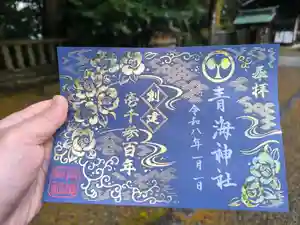 奉拝
青海神社
令和八年一月一日
創建
壱千参百年